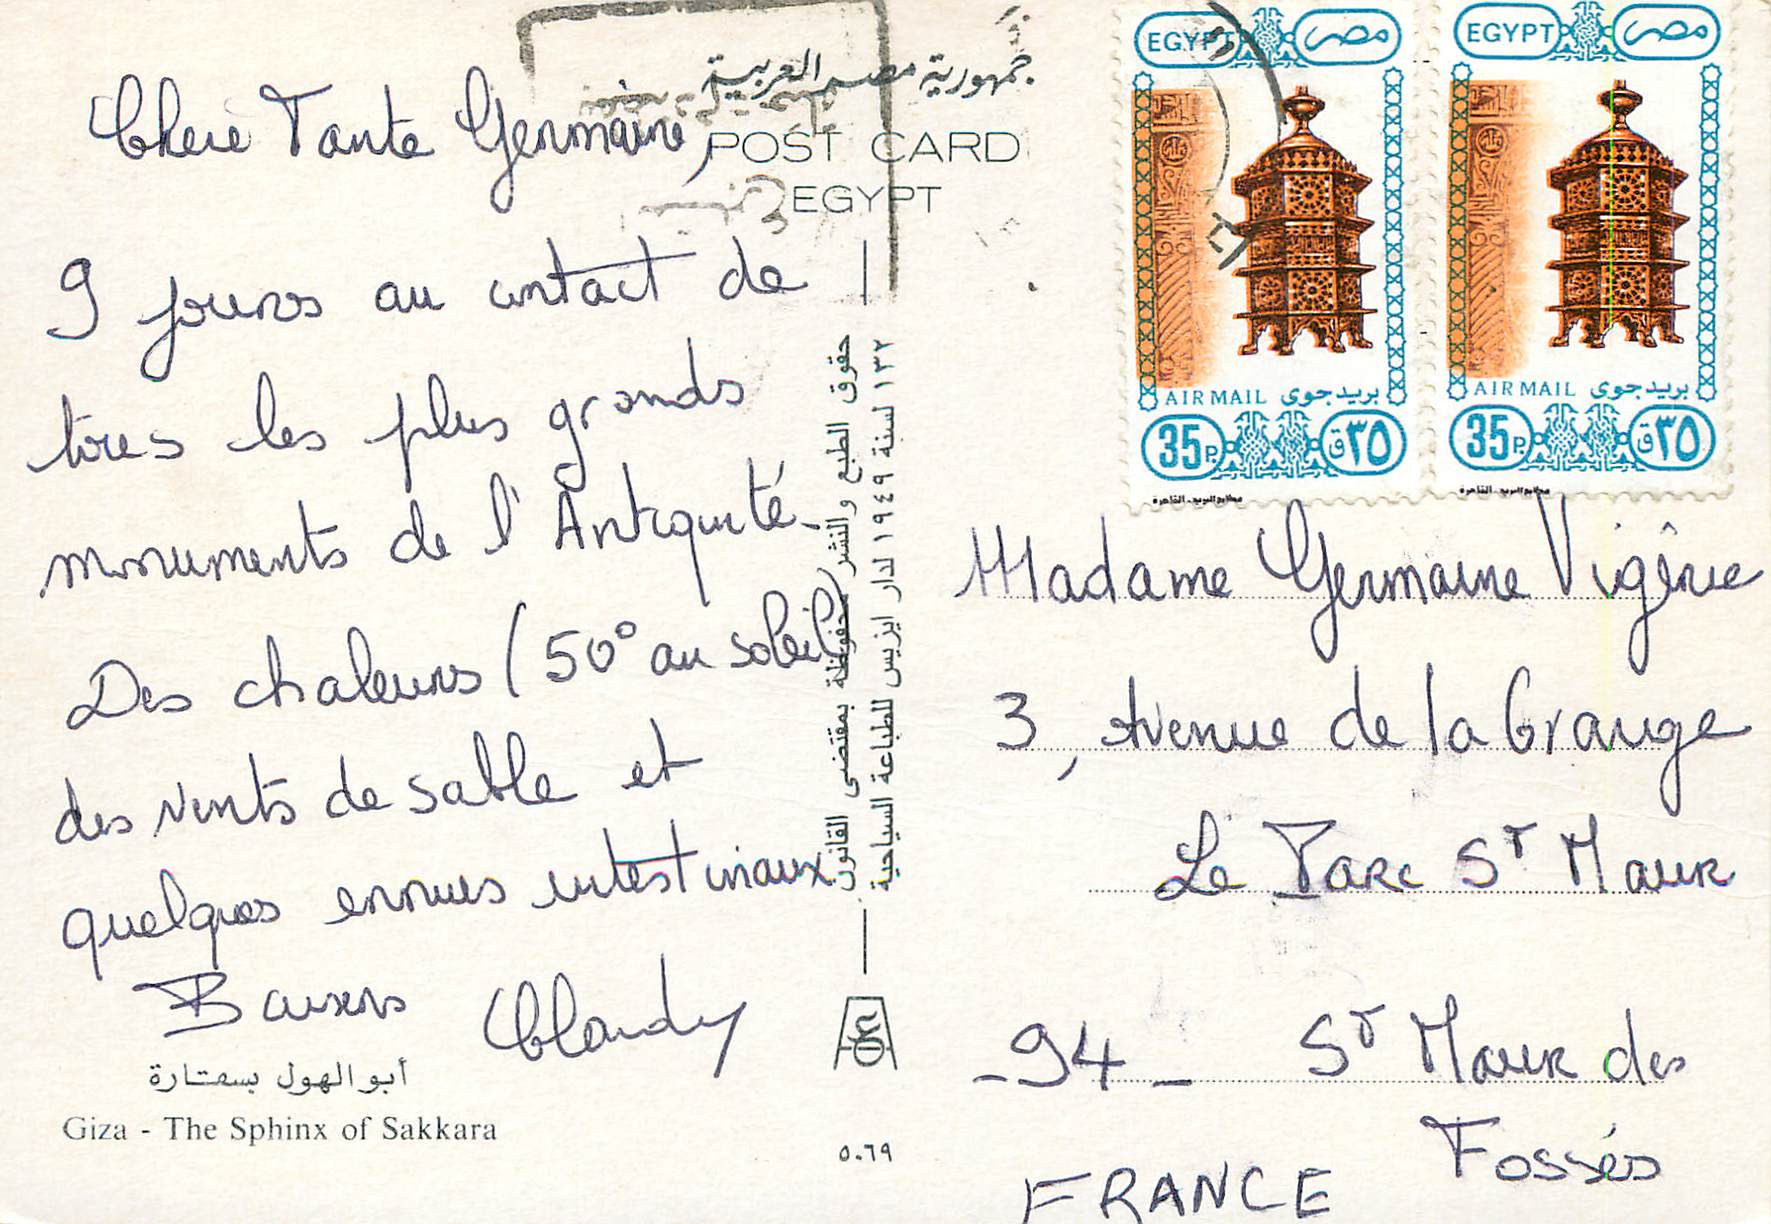 جمهورية مصر العربية
POST CARD
EGYPT
Chere Tante Germaine,
9 jours au contact de
tous les plus grands
monuments de l'Antiquité.
Des chaleurs (50° au soleil)
des vents de sable et
quelques ennuis intestinaux
Baisers Claudy
أبو الهول بسقارة
Giza - The Sphinx of Sakkara
حقوق الطبع والنشر محفوظة بمقتضى القانون
١٣٢ لسنة ١٩٤٩ لدار ايزيس للطباعة السياحية
٥٠٦٩
EGYPT مصر
AIR MAIL بريد جوى
35 P. ٣٥ ق
مطابع البريد - القاهرة
EGYPT مصر
AIR MAIL بريد جوى
35 P. ٣٥ ق
مطابع البريد - القاهرة
Madame Germaine
3, Avenue de la Grange
Le Parc St Maur
- 94 - St Maur des
Fossés
FRANCE